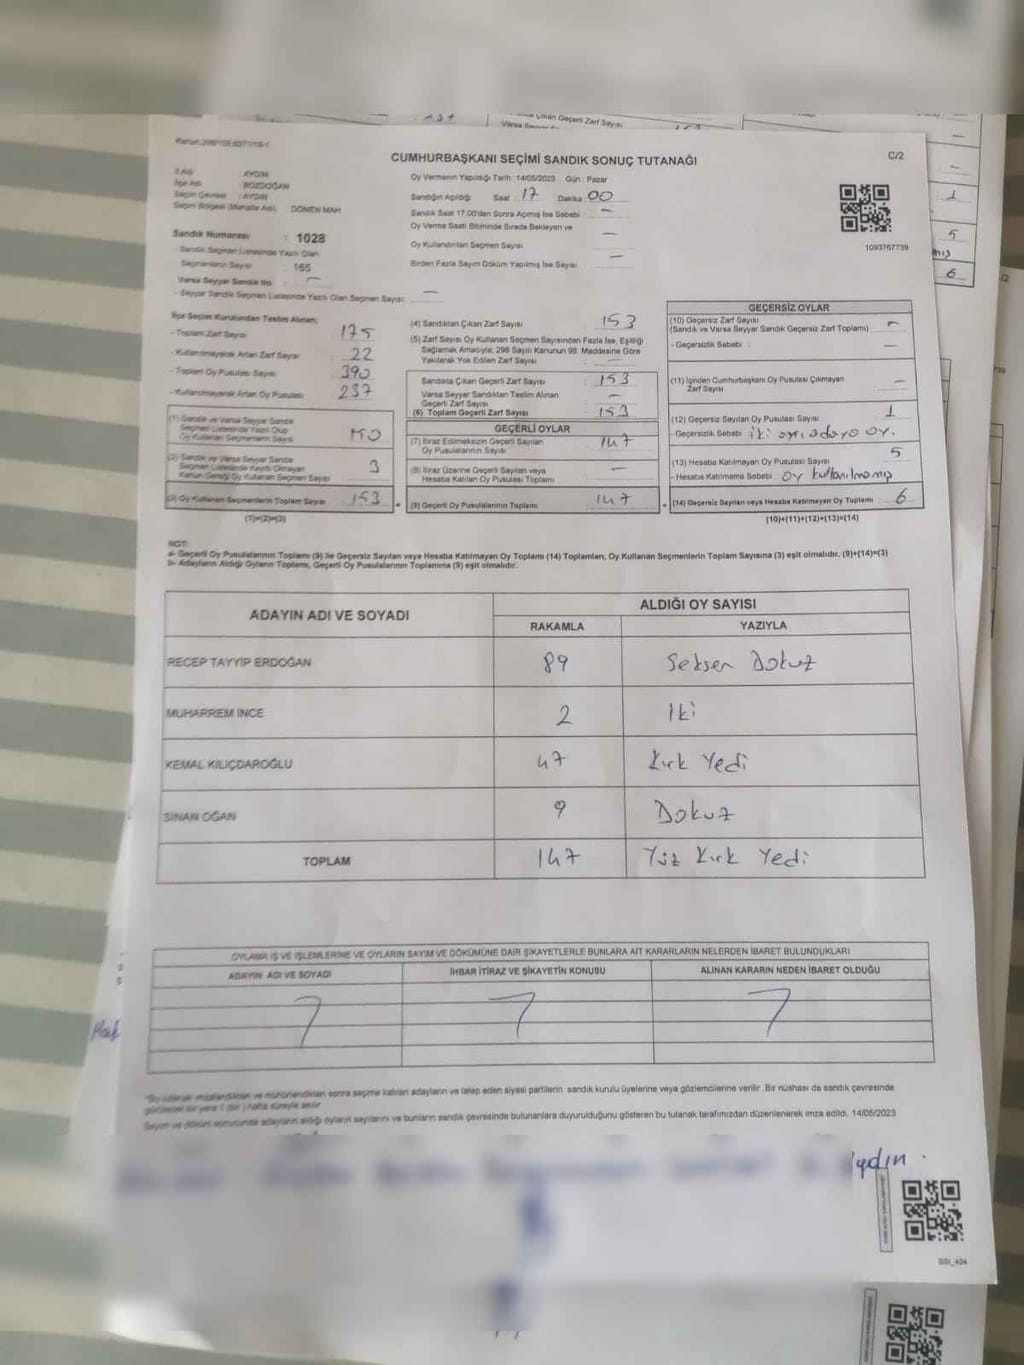 CUMHURBAŞKANI SEÇİMİ SANDIK SONUÇ TUTANAĞI
C/2
İl Adı : AYDIN
İlçe Adı : BOZDOĞAN
Seçim Çevresi : AYDIN
Seçim Bölgesi (Mahalle Adı) : DÖMEN MAH
Sandık Numarası : 1028
- Sandık Seçmen Listesinde Yazılı Olan
Seçmenlerin Sayısı : 165
Varsa Seyyar Sandık No : -
- Seyyar Sandık Seçmen Listesinde Yazılı Olan Seçmen Sayısı : -
Oy Vermenin Yapıldığı Tarih : 14/05/2023 Gün : Pazar
Sandığın Açıldığı Saat : 17 Dakika : 00
Sandık Saat 17.00'den Sonra Açılmış İse Sebebi : -
Oy Verme Saati Bitiminde Sırada Bekleyen ve
Oy Kullandırılan Seçmen Sayısı -
Birden Fazla Sayım Döküm Yapılmış İse Sayısı -
1093767739
İlçe Seçim Kurulundan Teslim Alınan;
- Toplam Zarf Sayısı : 175
- Kullanılmayarak Artan Zarf Sayısı : 22
- Toplam Oy Pusulası Sayısı : 390
- Kullanılmayarak Artan Oy Pusulası : 237
(1) Sandık ve Varsa Seyyar Sandık
Seçmen Listesinde Yazılı Olup
Oy Kullanan Seçmenlerin Sayısı 150
(2) Sandık ve Varsa Seyyar Sandık
Seçmen Listelerinde Kayıtlı Olmayan
Kanun Gereği Oy Kullanan Seçmen Sayısı 3
(3) Oy Kullanan Seçmenlerin Toplam Sayısı 153
(1)+(2)=(3)
(4) Sandıktan Çıkan Zarf Sayısı : 153
(5) Zarf Sayısı Oy Kullanan Seçmen Sayısından Fazla İse, Eşitliği
Sağlamak Amacıyla; 298 Sayılı Kanunun 98. Maddesine Göre
Yakılarak Yok Edilen Zarf Sayısı : -
Sandıkta Çıkan Geçerli Zarf Sayısı : 153
Varsa Seyyar Sandıktan Teslim Alınan
Geçerli Zarf Sayısı : -
(6) Toplam Geçerli Zarf Sayısı : 153
GEÇERLİ OYLAR
(7) İtiraz Edilmeksizin Geçerli Sayılan
Oy Pusulalarının Sayısı : 147
(8) İtiraz Üzerine Geçerli Sayılan veya
Hesaba Katılan Oy Pusulası Toplamı : -
(9) Geçerli Oy Pusulalarının Toplamı : 147
GEÇERSİZ OYLAR
(10) Geçersiz Zarf Sayısı
(Sandık ve Varsa Seyyar Sandık Geçersiz Zarf Toplamı) : -
- Geçersizlik Sebebi : -
(11) İçinden Cumhurbaşkanı Oy Pusulası Çıkmayan
Zarf Sayısı : -
(12) Geçersiz Sayılan Oy Pusulası Sayısı : 1
- Geçersizlik Sebebi : iki ayrı adaya oy.
(13) Hesaba Katılmayan Oy Pusulası Sayısı : 5
- Hesaba Katılmama Sebebi : oy kullanılmamış
(14) Geçersiz Sayılan veya Hesaba Katılmayan Oy Toplamı : 6
(10)+(11)+(12)+(13)=(14)
NOT:
a- Geçerli Oy Pusulalarının Toplamı (9) ile Geçersiz Sayılan veya Hesaba Katılmayan Oy Toplamı (14) Toplamları, Oy Kullanan Seçmenlerin Toplam Sayısına (3) eşit olmalıdır. (9)+(14)=(3)
b- Adayların Aldığı Oyların Toplamı, Geçerli Oy Pusulalarının Toplamına (9) eşit olmalıdır.
ADAYIN ADI VE SOYADI
ALDIĞI OY SAYISI
RAKAMLA YAZIYLA
RECEP TAYYİP ERDOĞAN 89 Seksen Dokuz
MUHARREM İNCE 2 İki
KEMAL KILIÇDAROĞLU 47 Kırk Yedi
SİNAN OĞAN 9 Dokuz
TOPLAM 147 Yüz Kırk Yedi
OYLAMA İŞ VE İŞLEMLERİNE VE OYLARIN SAYIM VE DÖKÜMÜNE DAİR ŞİKAYETLERLE BUNLARA AİT KARARLARIN NELERDEN İBARET BULUNDUKLARI
ADAYIN ADI VE SOYADI İHBAR İTİRAZ VE ŞİKAYETİN KONUSU ALINAN KARARIN NEDEN İBARET OLDUĞU
*Bu tutanak imzalandıktan ve mühürlendikten sonra seçime katılan adayların ve talep eden siyasi partilerin sandık kurulu üyelerine veya gözlemcilerine verilir. Bir nüshası da sandık çevresinde
görülecek bir yere 1 (bir) hafta süreyle asılır.
Sayım ve döküm sonucunda adayların aldığı oyların sayılarını ve bunların sandık çevresinde bulunanlara duyurulduğunu gösteren bu tutanak tarafımızdan düzenlenerek imza edildi. 14/05/2023